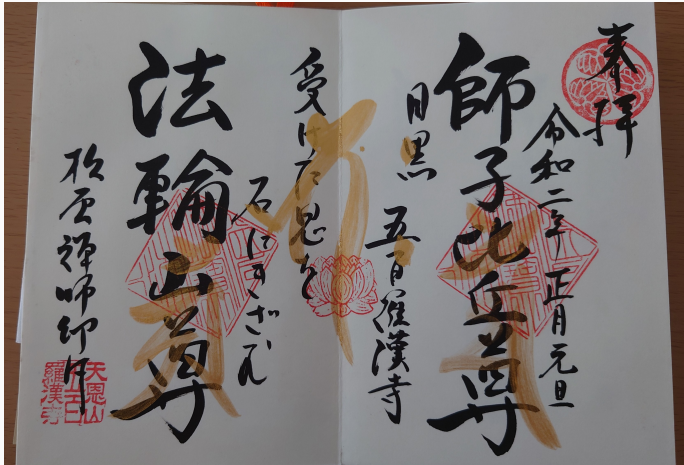 奉拝
令和二年 正月元旦
師子比丘尊
目黒 五百羅漢寺
受けた恩を
石にきざむ
法輪山尊
松雲禅師御作
天恩山
五百
羅漢寺